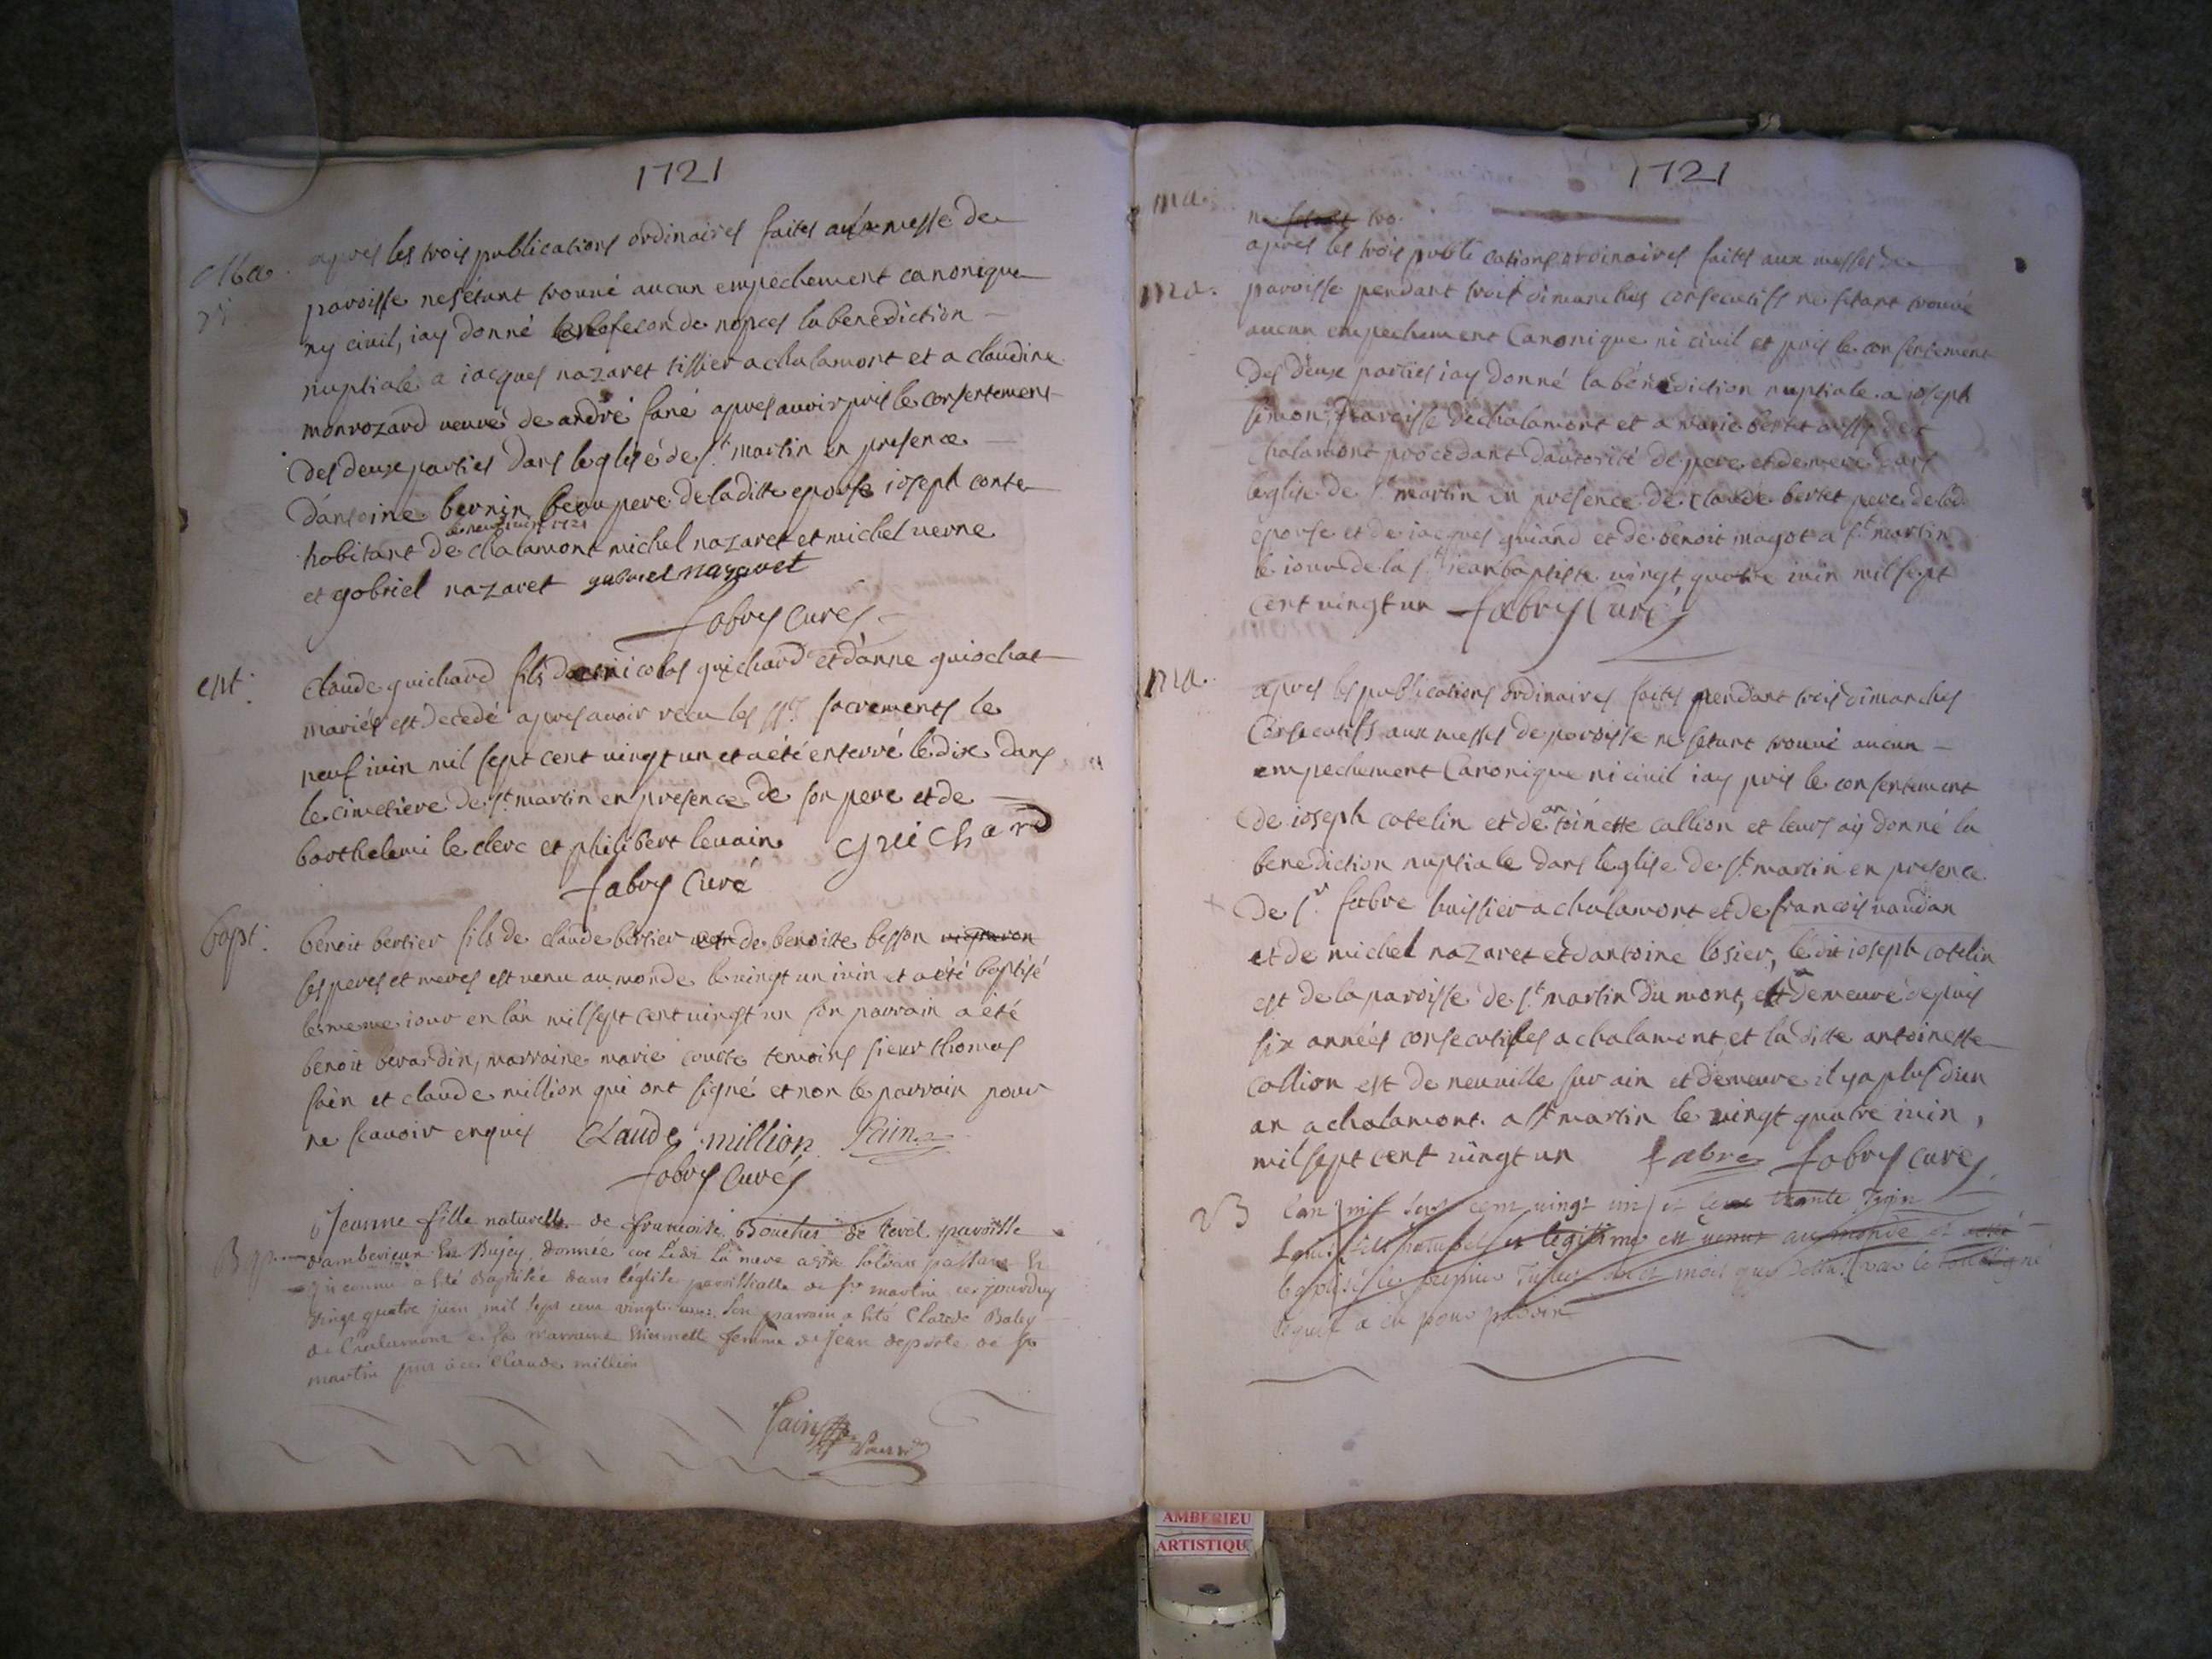 1721
Ma.
apres les trois publications ordinaires faites a la messe de
paroisse nesétant trouué aucun empechement canonique
ny ciuil, iay donné de nopces la benediction
nuptiale a iacques nazaret tissier a chalamont et a claudine
monrozard ueuue de andré fané apres auoir pris le consentement
des deux parties dans leglise de st martin en presence
dantoine bernin beau pere de laditte epouse ioseph conte
le neuf iuin 1721
habitant de chalamont michel nazaret et michel uerne
et gabriel nazaret gabriel nazaret
fabry Curé
ent.
Claude guichard fils de nicolas guichard et danne guiochat
mariés est decedé apres auoir receu les sts sacrements le
neuf iuin mil sept cent uingt un et a été enterré le dix dans
le cimetiere de st martin en presence de son pere et de
barthelemi le clerc et philibert leuain guichard
fabry Curé
bapt.
benoit bertier fils de claude bertier et de benoitte besson
ses peres et meres est uenu au monde le uingt un iuin et a été baptisé
le meme iour en lan mil sept cent uingt un son parrain a été
benoit berardin, marraine marie couste temoins sieur thomas
sain et claude million qui ont signé et non le parrain pour
ne scauoir enquis Claude million Sain
fabry Curé
Jeanne fille naturelle de francoise Bouchet de tevel paroisse
Bap.
dambérieux En Bujey, donnée la mere a un soldat passant Et
inconnu a Eté Baptisée dans l'église parroissialle de st martin ce jourdhuy
vingt quatre juin mil sept cent vingt un son parrain a Eté Claude Baley
de Chalamont et sa marraine Etiennette femme de Jean deporte de st
martin Claude million
Sain
1721
ma.
ne
apres les trois publications ordinaires faites aux messes de
ma.
paroisse pendant trois dimanches consecutifs ne sétant trouué
aucun empechement Canonique ni ciuil et pris le consentement
des deux parties iay donné la bénédiction nuptiale a ioseph
simon paroisse de chalamont et a marie bertet aussy de
chalamont procedant dautorité de pere et de mere dans
leglise de st martin en presence de claude bertet pere de lad.
epouse et de iacques guiand et de benoit magot a st martin
le iour de la st iean baptiste uingt quatre iuin mil sept
cent uingt un fabry Curé
ma.
apres les publications ordinaires faites pendant trois dimanches
Consecutifs aux messes de paroisse ne sétant trouué aucun
empechement Canonique ni ciuil iay pris le consentement
de ioseph cotelin et de antoinette callion et leurs ay donné la
benediction nuptiale dans leglise de st martin en presence
de sr fabre huissier a chalamont et de francois uaudan
et de michel nazaret et dantoine losier, ledit ioseph cotelin
est de la paroisse de st martin du mont, et demeure depuis
six années consecutifes a chalamont et la ditte antoinette
callion est de neuuille sur ain et demeure il y a plus dun
an a chalamont. a st martin le uingt quatre iuin,
mil sept cent uingt un fabre fabry curé
B
Lan mil sept cent vingt un et le trente Juin
Louis fils naturel et légitime est venu au monde et
baptisé le premier Juillet par le soussigné
lequel a eu pour parrain
AMBERIEU
ARTISTIQU